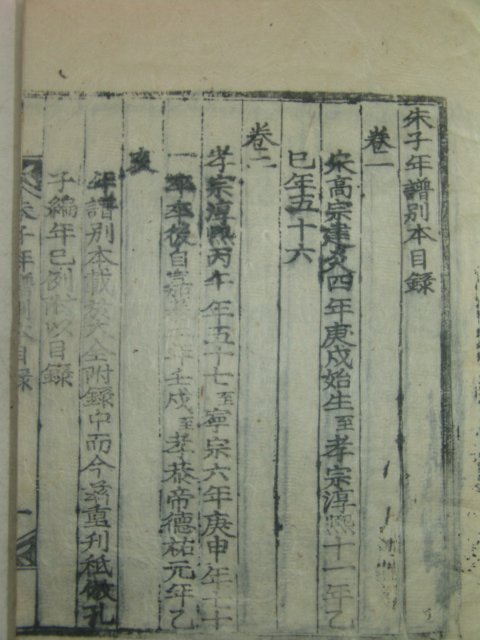 朱子年譜別本目錄
卷一
宋高宗建炎四年庚戌始生至孝宗淳熙十一年乙
巳年五十六
卷二
孝宗淳熙丙午年五十七至寧宗六年庚申年七十
一卒卒後自嘉 年壬戌至孝恭帝德祐元年乙
亥
年譜別本載於大全附錄中而今玆重刊秪倣孔
子編年已例 以目錄
朱子年譜別本目錄 一